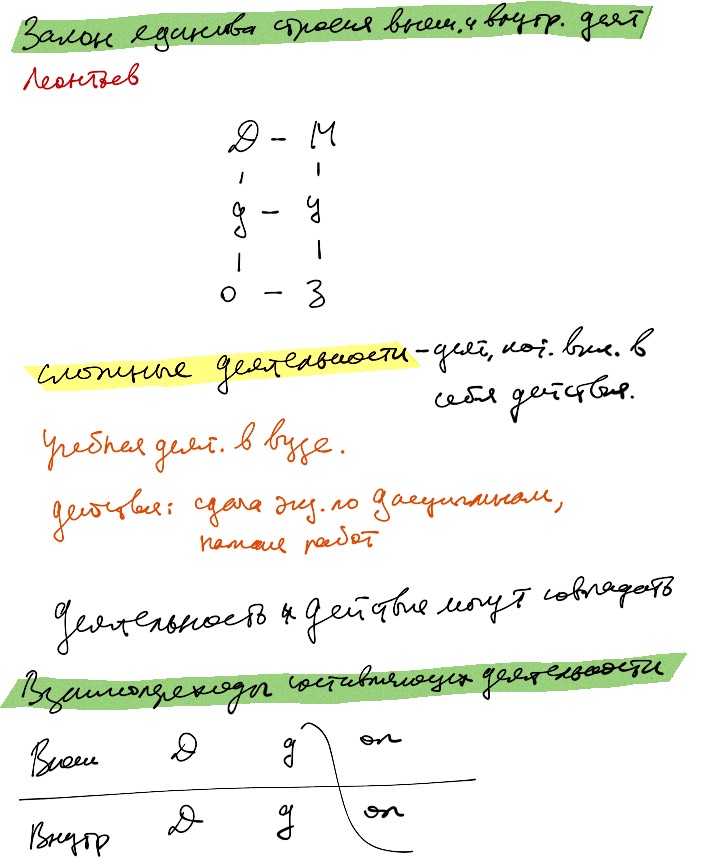 Закон единства строения внеш. и внутр. деят
Леонтьев
Д – М
д – у
о – З
сложные деятельности – деят, кот. вкл. в
себя действия.
Учебная деят. в вузе.
действия: сдача экз. по дисциплинам,
написание работ
Деятельность и действия могут совпадать
Взаимопереходы составляющих деятельности
Внеш Д д оп
Внутр Д д оп